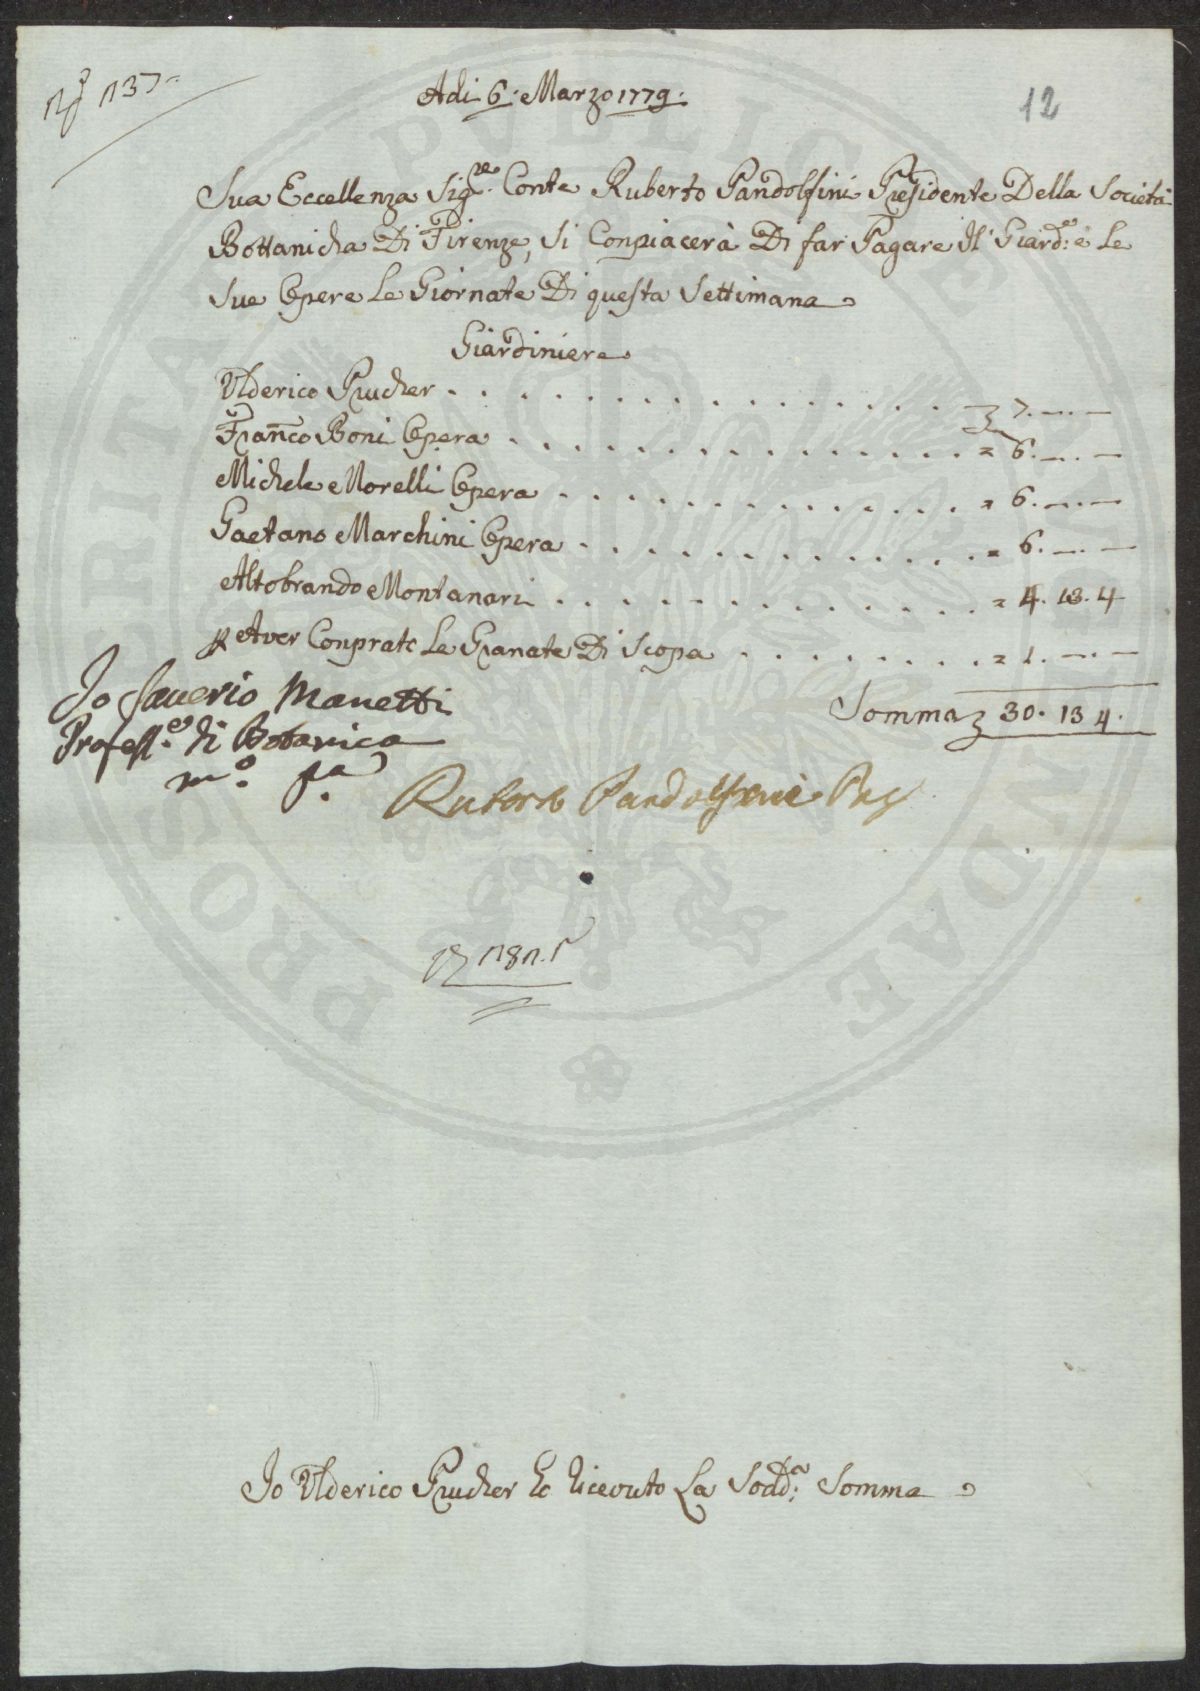 Adi 6: Marzo 1779:
12
Sua Eccellenza Sig.re Conte Ruberto Pandolfini Presidente Della Società
Bottanicha Di Firenze, Si Conpiacerà Di far Pagare Il Giard.e: e Le
Sue Opere Le Giornate Di questa Settimana
Giardiniere
Ulderico Prucher . . . . . . . . . . . . . . . . 7.—.—
Franco Boni Opera . . . . . . . . . . . . . . . = 6.—.—
Michele Morelli Opera . . . . . . . . . . . . . = 6.—.—
Gaetano Marchini Opera . . . . . . . . . . . . = 6.—.—
Altobrando Montanari . . . . . . . . . . . . . = 4. 13. 4
p Aver Conprato Le Granate Di Scopa . . . . . . . . = 1.—.—
Somma 30. 13 4.
Io Saverio Manetti
Profess.e di Botanica
m.o p.a
Ruberto Pandolfini Pres
Io Ulderico Prucher ho riceuto La Sodd.a: Somma
PROSPERITATI PUBLICAE AUGENDAE